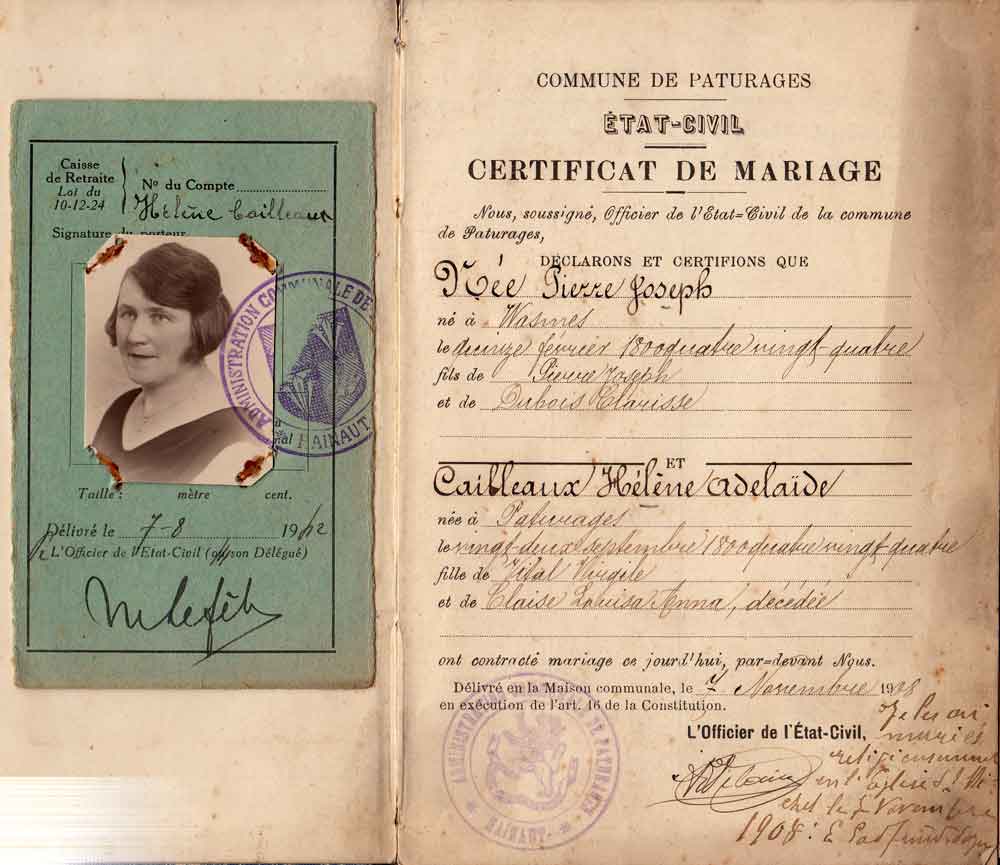 Caisse
de Retraite
Loi du
10-12-24
N° du Compte
Hélène Cailleaux
Signature du porteur
ADMINISTRATION COMMUNALE DE
HAINAUT
Taille : mètre cent.
Délivré le 7-8 1912
L'Officier de l'Etat-Civil (ou son Délégué)
COMMUNE DE PATURAGES
ÉTAT-CIVIL
CERTIFICAT DE MARIAGE
Nous, soussigné, Officier de l'Etat=Civil de la commune
de Paturages,
DÉCLARONS ET CERTIFIONS QUE
Née Pierre Joseph
né à Wasmes
le février 1800 quatre vingt-quatre
fils de Pierre Joseph
et de Dubois Clarisse
ET
Cailleaux Hélène Adelaïde
née à Paturages
le vingt-deux septembre 1800 quatre vingt-quatre
fille de Vital Virgile
et de Claise Louisa Anna, décédée
ont contracté mariage ce jourd'hui, par=devant Nous.
Délivré en la Maison communale, le 7 Novembre 1908
en exécution de l'art. 16 de la Constitution.
L'Officier de l'État-Civil,
Je les ai
mariés
religieusement
en l'Eglise St Mi
chel le 7 Novembre
1908 :
ADMINISTRATION COMMUNALE DE PATURAGES
HAINAUT